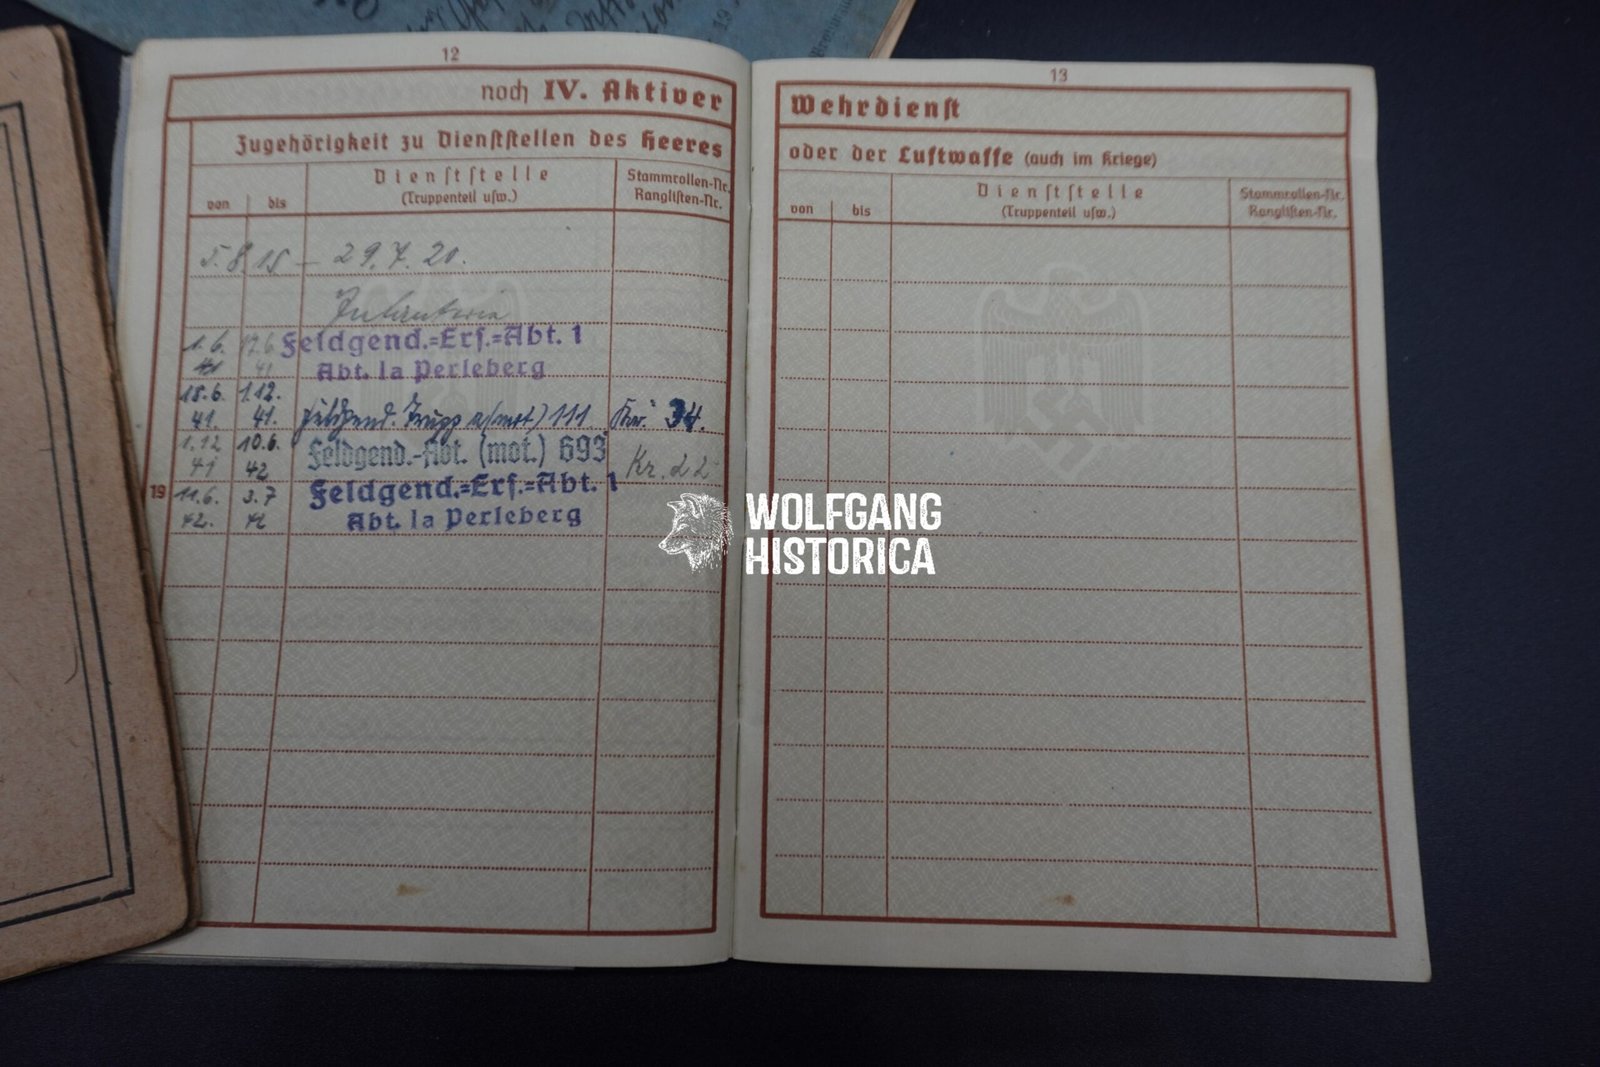 12
noch IV. Aktiver
Zugehörigkeit zu Dienststellen des Heeres
von bis Dienststelle (Truppenteil usw.) Stammrollen-Nr. Ranglisten-Nr.
5.8 15 – 29.7.20.
Infanterie
1.6. 41 17.6. 41 Feldgend.=Ers.=Abt. 1
Abt. Ia Perleberg
18.6. 41. 1.12. 41. Feldgend. Trupp (mot) 111 34.
1.12 41 10.6. 42 Feldgend.-Abt. (mot.) 693 Kr. 22
19 11.6. 42. 3.7 42 Feldgend.=Ers.=Abt. 1
Abt. Ia Perleberg
13
Wehrdienst
oder der Luftwaffe (auch im Kriege)
von bis Dienststelle (Truppenteil usw.) Stammrollen-Nr. Ranglisten-Nr.
WOLFGANG
HISTORICA